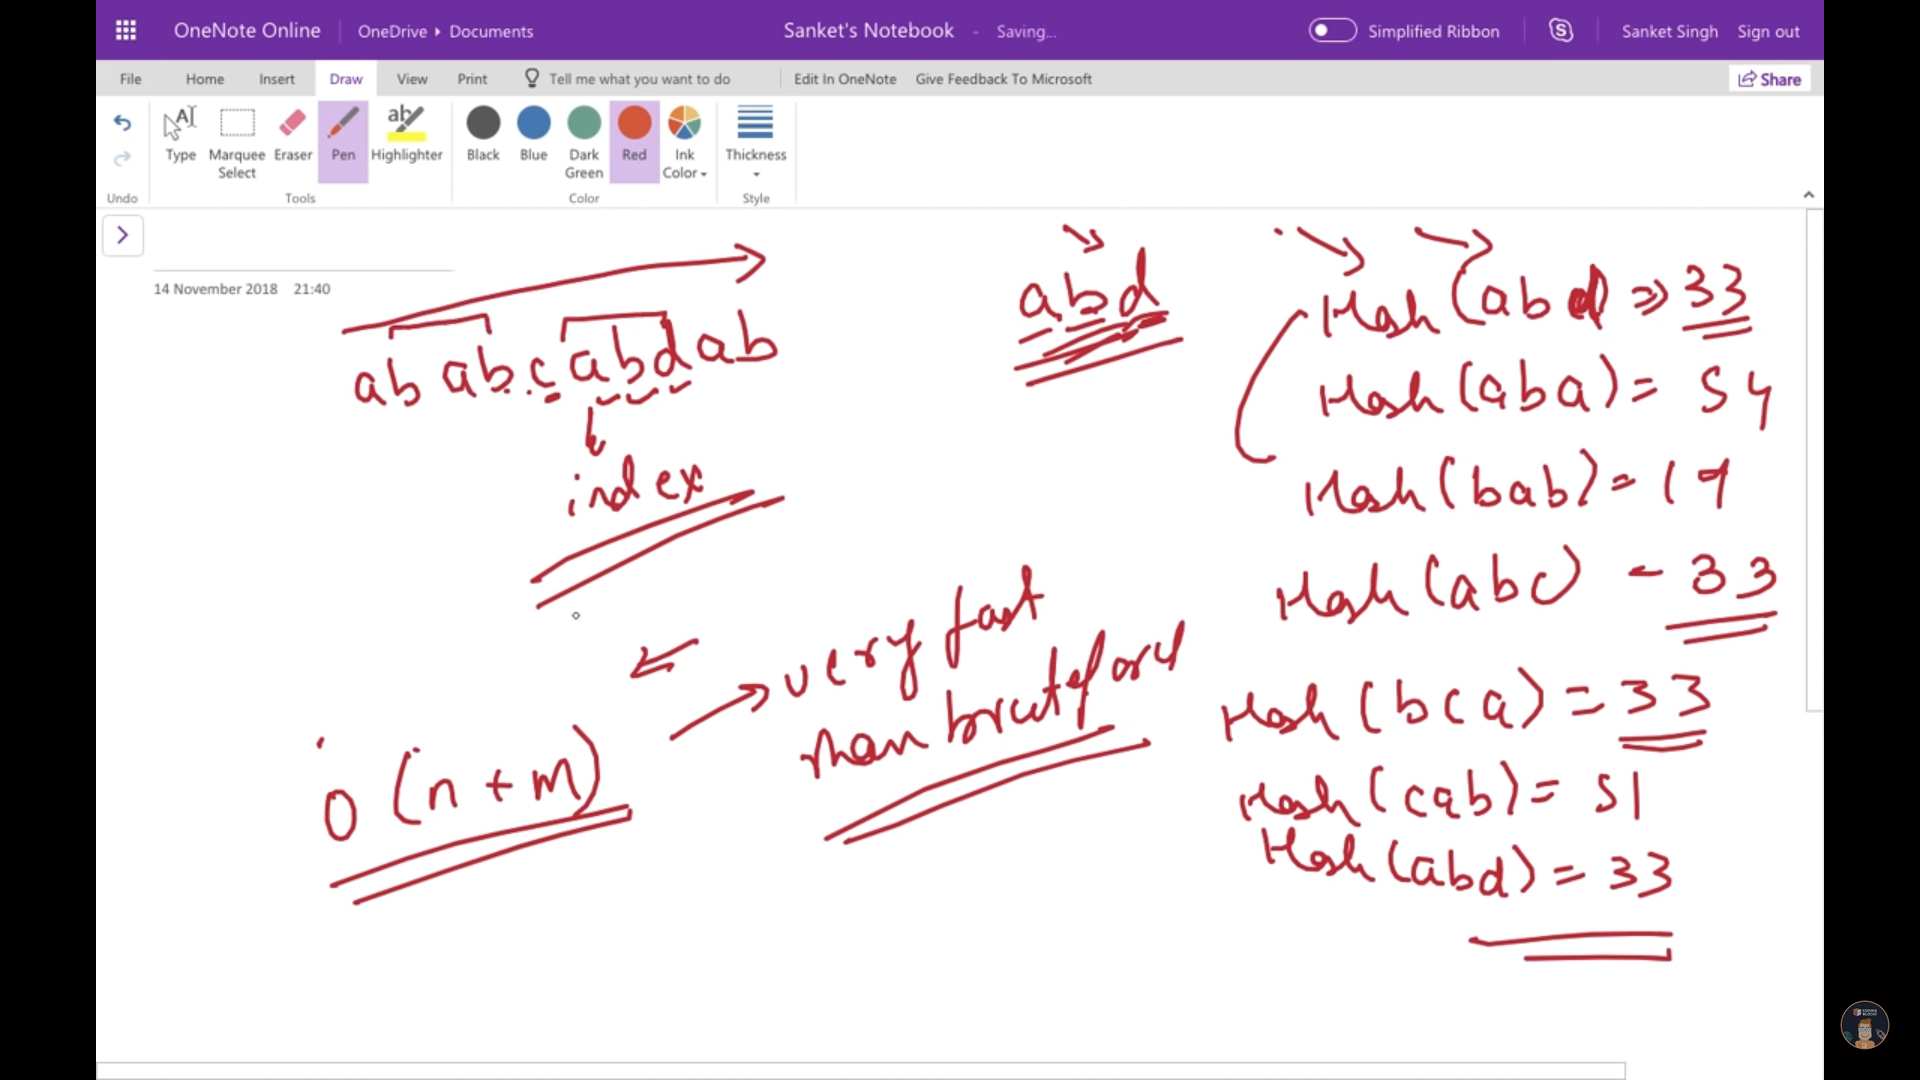 OneNote Online OneDrive Documents Sanket's Notebook - Saving... Simplified Ribbon Sanket Singh Sign out
File Home Insert Draw View Print Tell me what you want to do Edit In OneNote Give Feedback To Microsoft Share
Type Marquee Select Eraser Pen Highlighter Black Blue Dark Green Red Ink Color Thickness
Undo Tools Color Style
14 November 2018 21:40
ab abc abd ab
index
abd
Hash (abd => 33
Hash (aba) = 54
Hash (bab) = 19
Hash (abc) - 33
Hash (bca) = 33
Hash (cab) = 51
Hash (abd) = 33
very fast
than bruteforce
O (n + m)